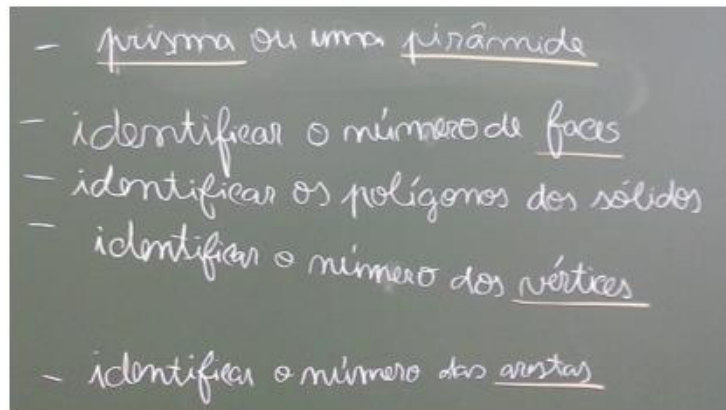 - prisma ou uma pirâmide
- identificar o número de faces
- identificar os polígonos dos sólidos
- identificar o número dos vértices
- identificar o número das arestas